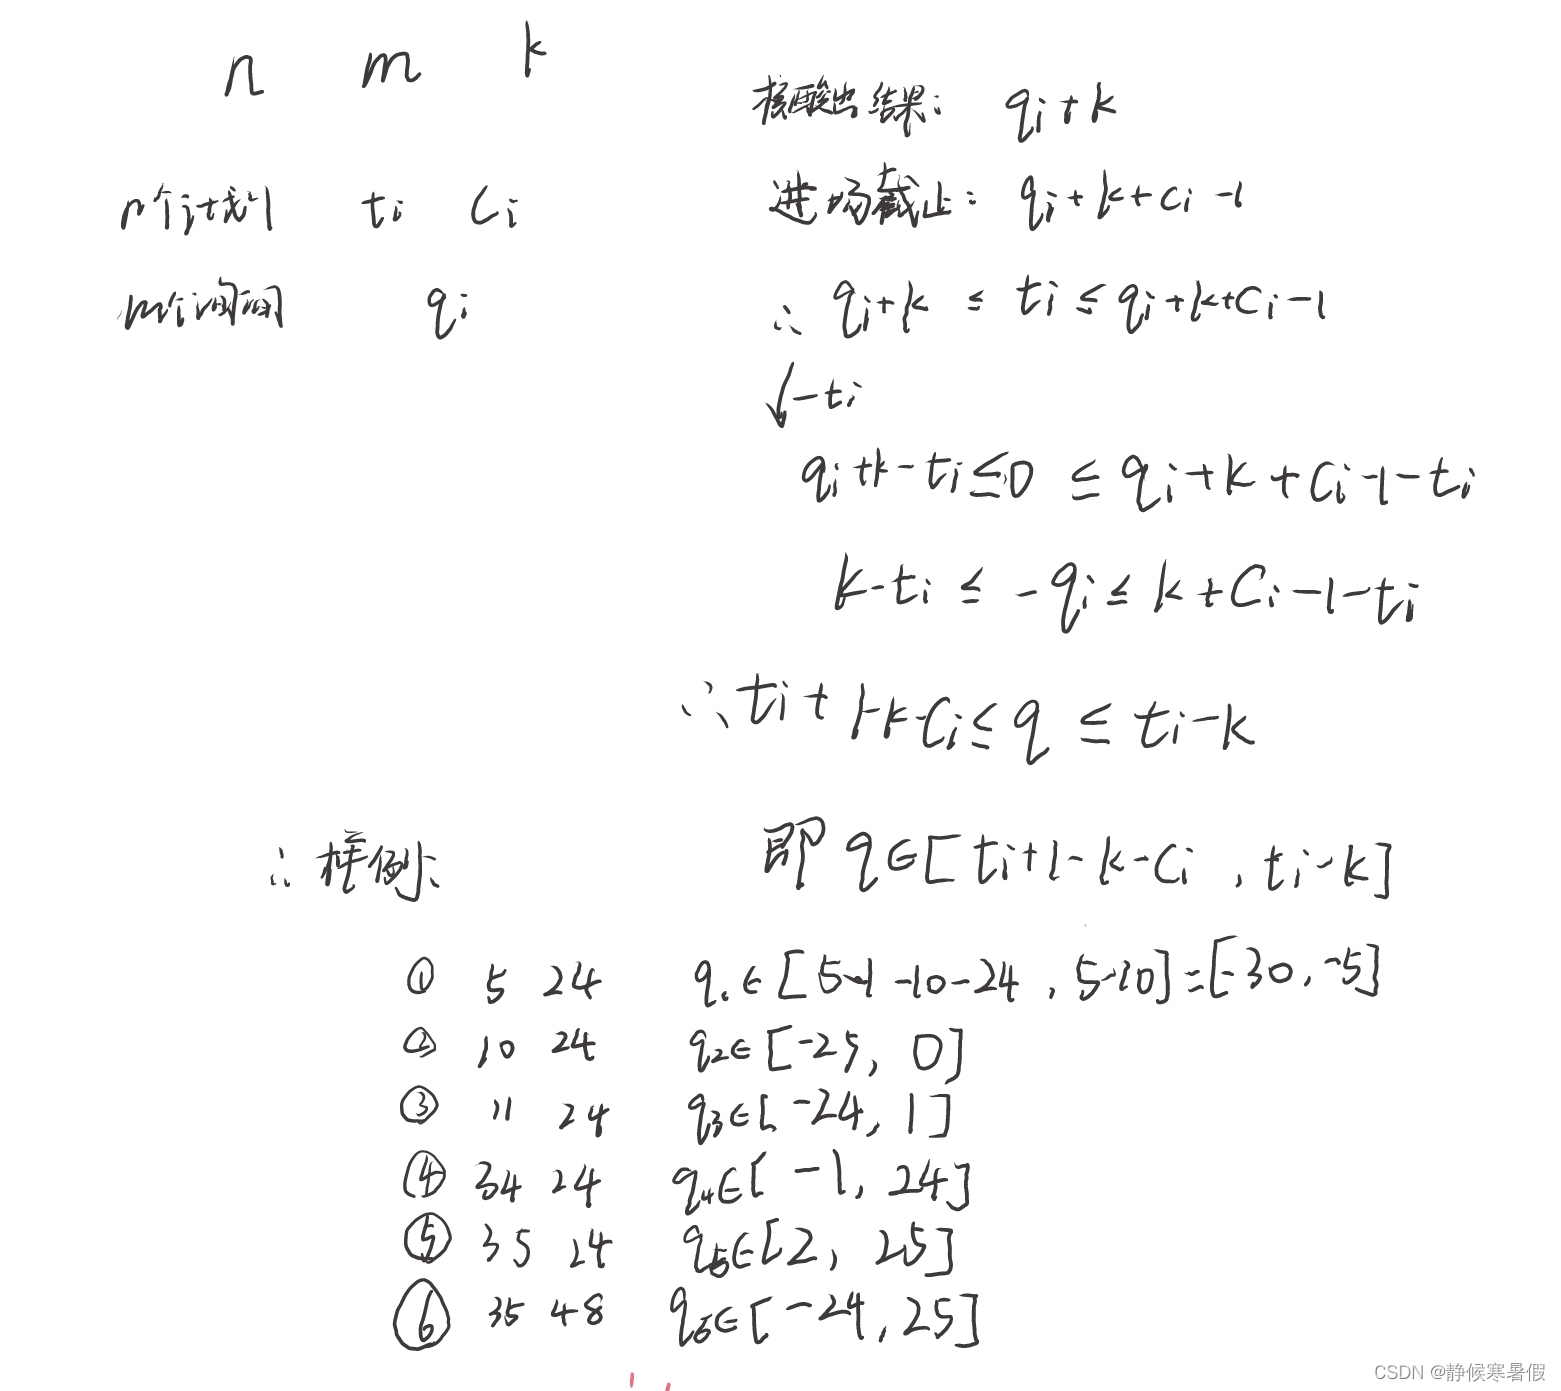 n m k
n个计划 ti Ci
m个询问 qi
核酸出结果: qi+k
进场截止: qi+k+ci-1
∴ qi+k ≤ ti ≤ qi+k+Ci-1
↓-ti
qi+k-ti≤0 ≤ qi+k+Ci-1-ti
k-ti ≤ -qi ≤ k+Ci-1-ti
∴ ti+1-k-Ci ≤ q ≤ ti-k
即 q∈[ti+1-k-Ci , ti-k]
∴ 样例:
① 5 24 q1∈[5-1-10-24 , 5-10]=[-30,-5]
② 10 24 q2∈[-25, 0]
③ 11 24 q3∈[-24, 1]
④ 34 24 q4∈[-1, 24]
⑤ 35 24 q5∈[2, 25]
⑥ 35 48 q6∈[-24,25]
CSDN @静候寒暑假